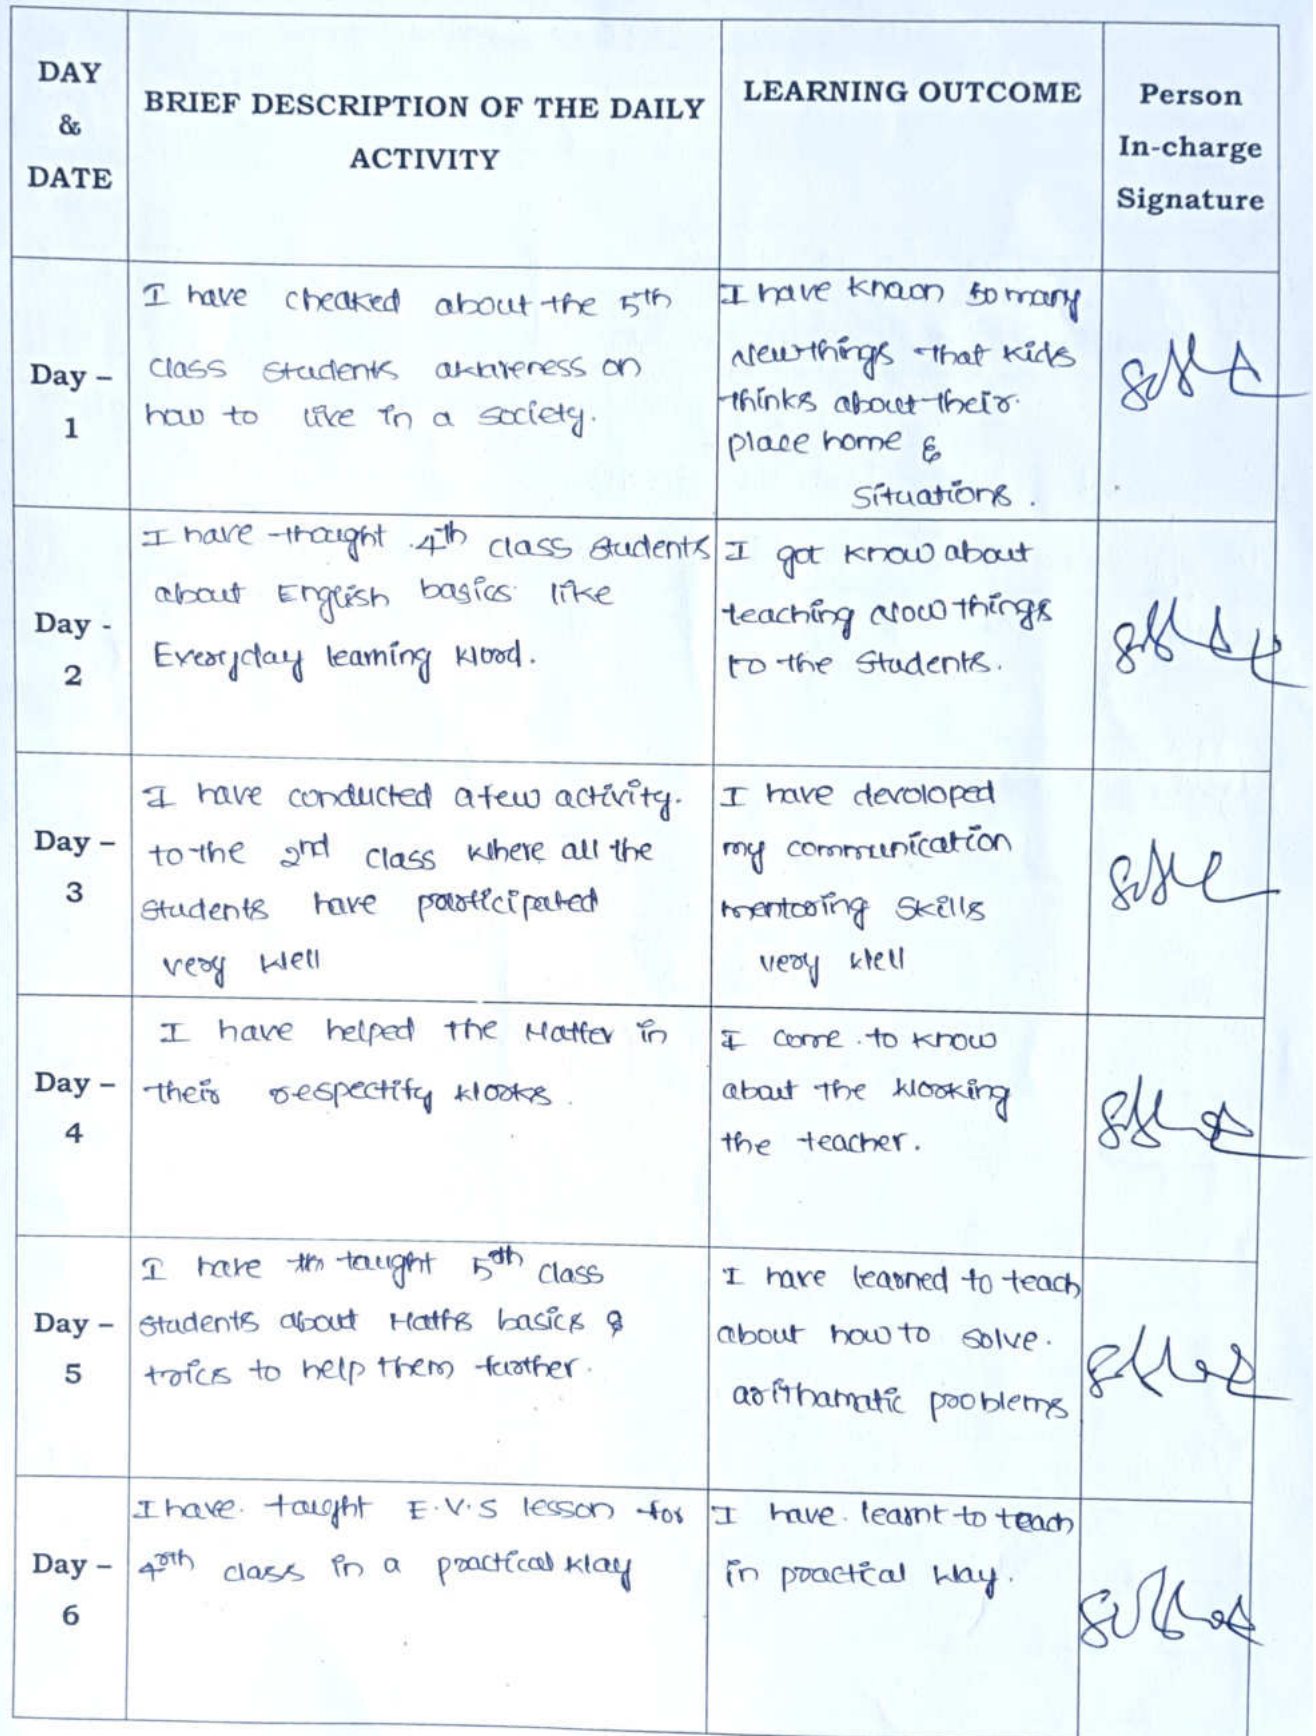 DAY
&
DATE
BRIEF DESCRIPTION OF THE DAILY
ACTIVITY
LEARNING OUTCOME
Person
In-charge
Signature
Day –
1
I have cheaked about the 5th
class students awareness on
how to live in a society.
I have known so many
new things that kids
thinks about their
place home &
situations.
Day -
2
I have thaught 4th class students
about English basics like
Everyday learning word.
I got know about
teaching now things
to the students.
Day –
3
I have conducted a few activity.
to the 2nd class where all the
students have participated
very well
I have devoloped
my communication
mentoring skills
very well
Day –
4
I have helped the Matter in
their respectify works.
I come to know
about the working
the teacher.
Day –
5
I have th taught 5th class
students about Maths basics &
trics to help them further.
I have learned to teach
about how to solve.
arithamatic problems
Day –
6
I have taught E.V.S lesson for
4th class in a practical way
I have learnt to teach
in practical way.